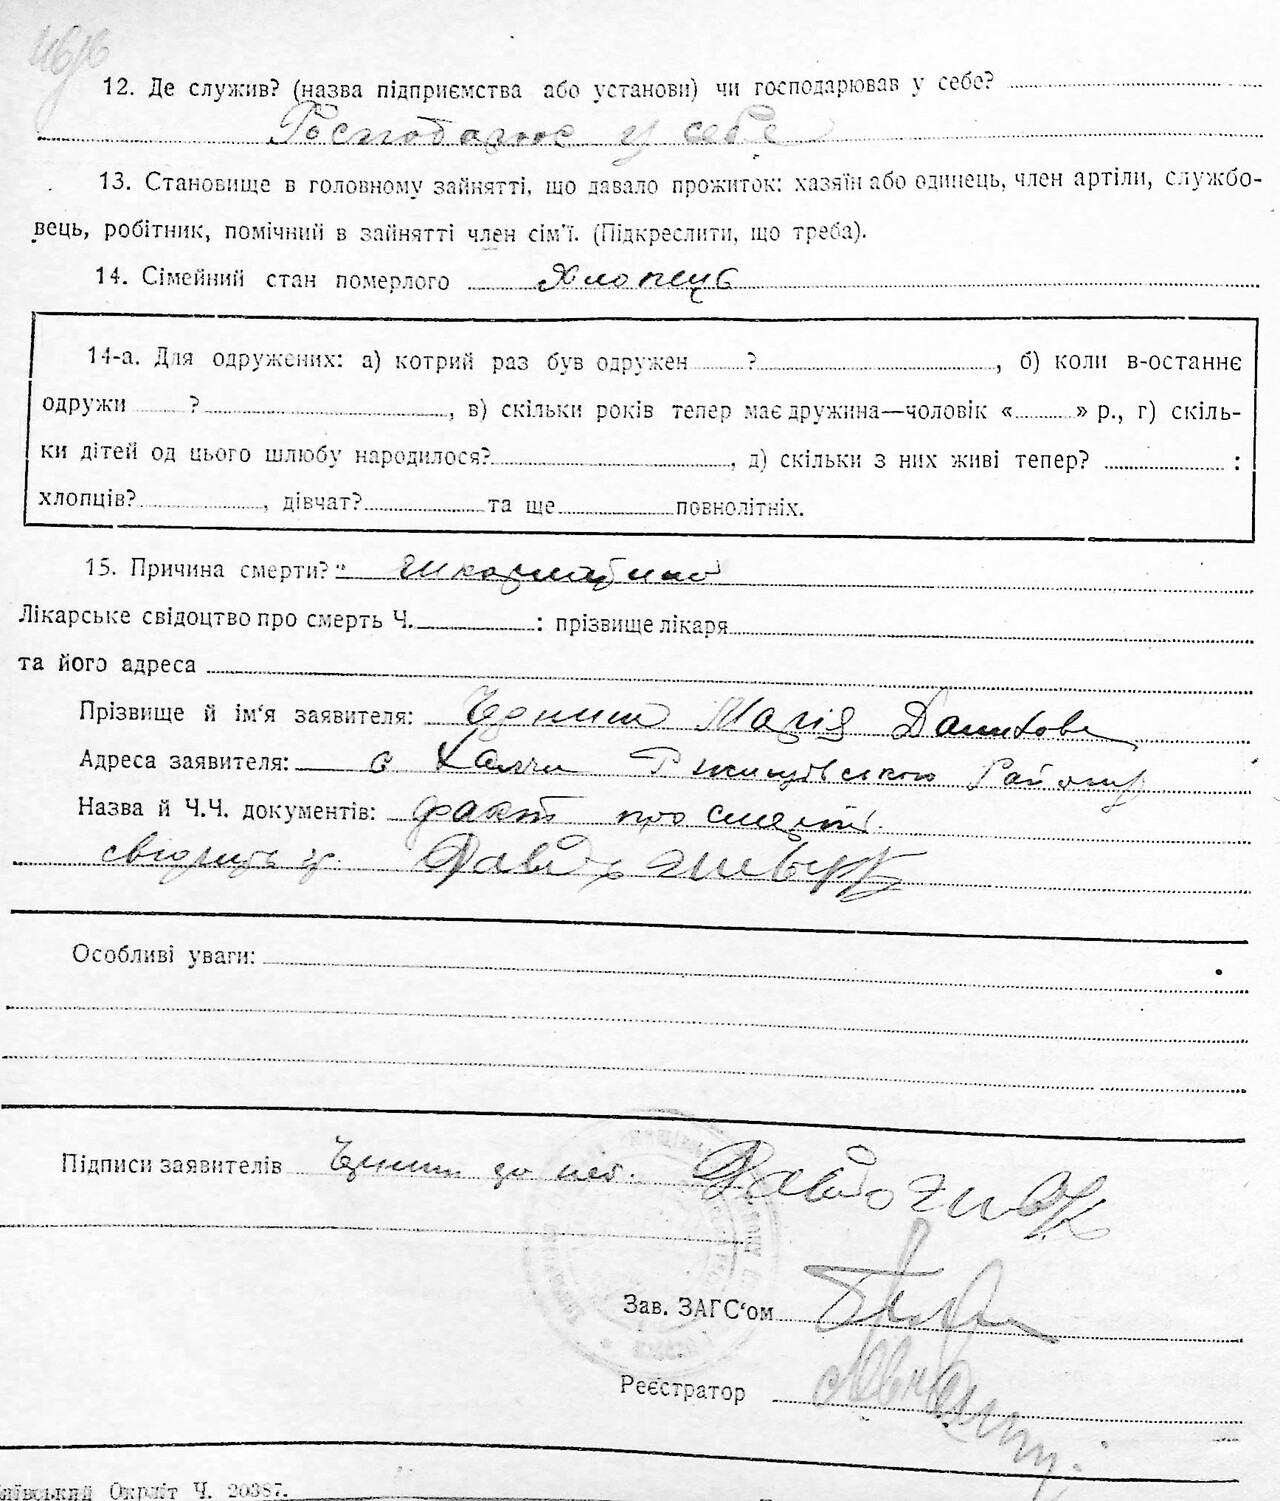 12. Де служив? (назва підприємства або установи) чи господарював у себе?
Господарює у себе
13. Становище в головному зайнятті, що давало прожиток: хазяїн або одинець, член артіли, службо-
вець, робітник, помічний в зайнятті член сім'ї. (Підкреслити, що треба).
14. Сімейний стан померлого Хлопець
14-а. Для одружених: а) котрий раз був одружен ? , б) коли в-останнє
одружи ? , в) скільки років тепер має дружина—чоловік « » р., г) скіль-
ки дітей од цього шлюбу народилося? , д) скільки з них живі тепер? :
хлопців? , дівчат? та ще повнолітніх.
15. Причина смерти?
Лікарське свідоцтво про смерть Ч. : прізвище лікаря
та його адреса
Прізвище й ім'я заявителя: Марія
Адреса заявителя: с Халчи Ржищівського Району
Назва й Ч.Ч. документів: факт про смерть
свідчить
Особливі уваги:
Підписи заявителів
Зав. ЗАГС'ом
Реєстратор
Київський Окрліт Ч. 20387.